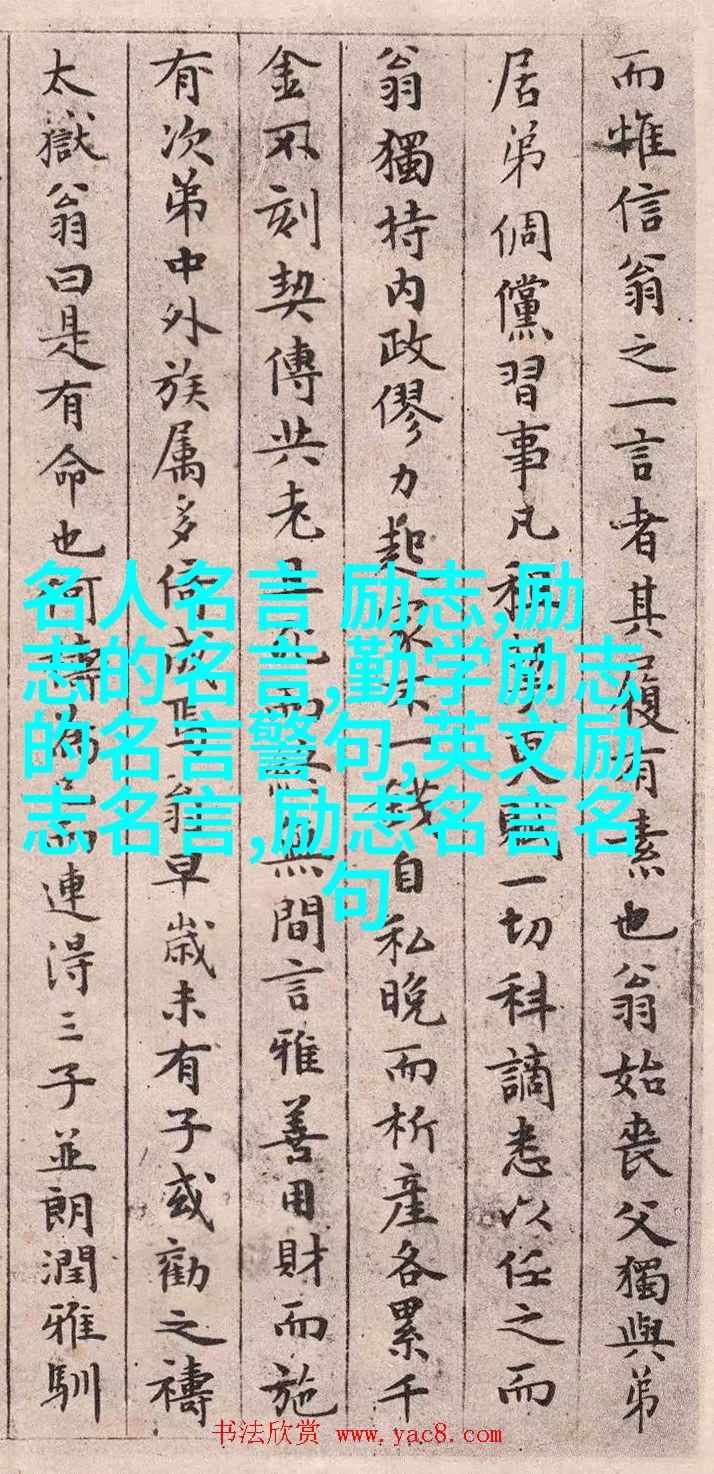 而惟信翁之一言者其履有素也翁始丧父獨與弟
居弟倜儻習事凡租更賦一切科謫悉以任之而
翁獨持内政僇力起家不一錢自私晚而析產各累千
金不刻契傳共老且死而無間言雅善用財而施
有次第中外族属多倚成焉翁早歲未有子或勸之禱
太嶽翁曰是有命也何禱為已而連淂三子並朗潤雅馴
名人名言 励志,励
志的名言,勤学励志
的名言警句,英文励
志名言,励志名言名
句
书法欣赏 www.yac8.com